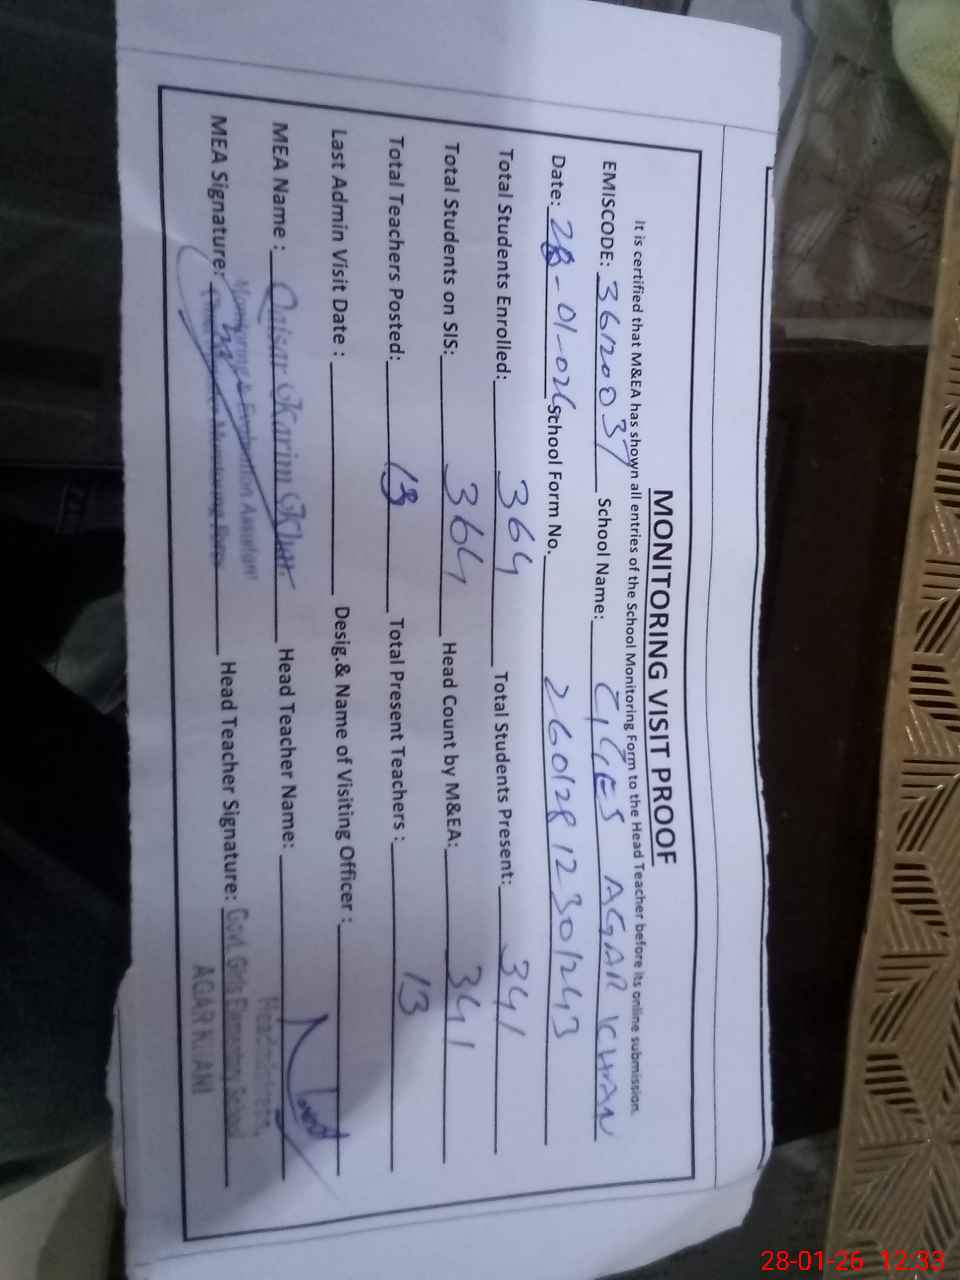 MONITORING VISIT PROOF
It is certified that M&EA has shown all entries of the School Monitoring Form to the Head Teacher before its online submission.
EMISCODE: 36120037 School Name: GGES AGAR KHAN
Date: 28-01-026 School Form No. 260128 12301243
Total Students Enrolled: 364 Total Students Present: 341
Total Students on SIS: 364 Head Count by M&EA: 341
Total Teachers Posted: 13 Total Present Teachers : 13
Last Admin Visit Date : Desig.& Name of Visiting Officer :
MEA Name : Qaisar Karim Head Teacher Name:
Monitoring & Evaluation Assistant
Headmistress
MEA Signature: Head Teacher Signature: Govt. Girls Elementary School
28-01-26 12:33